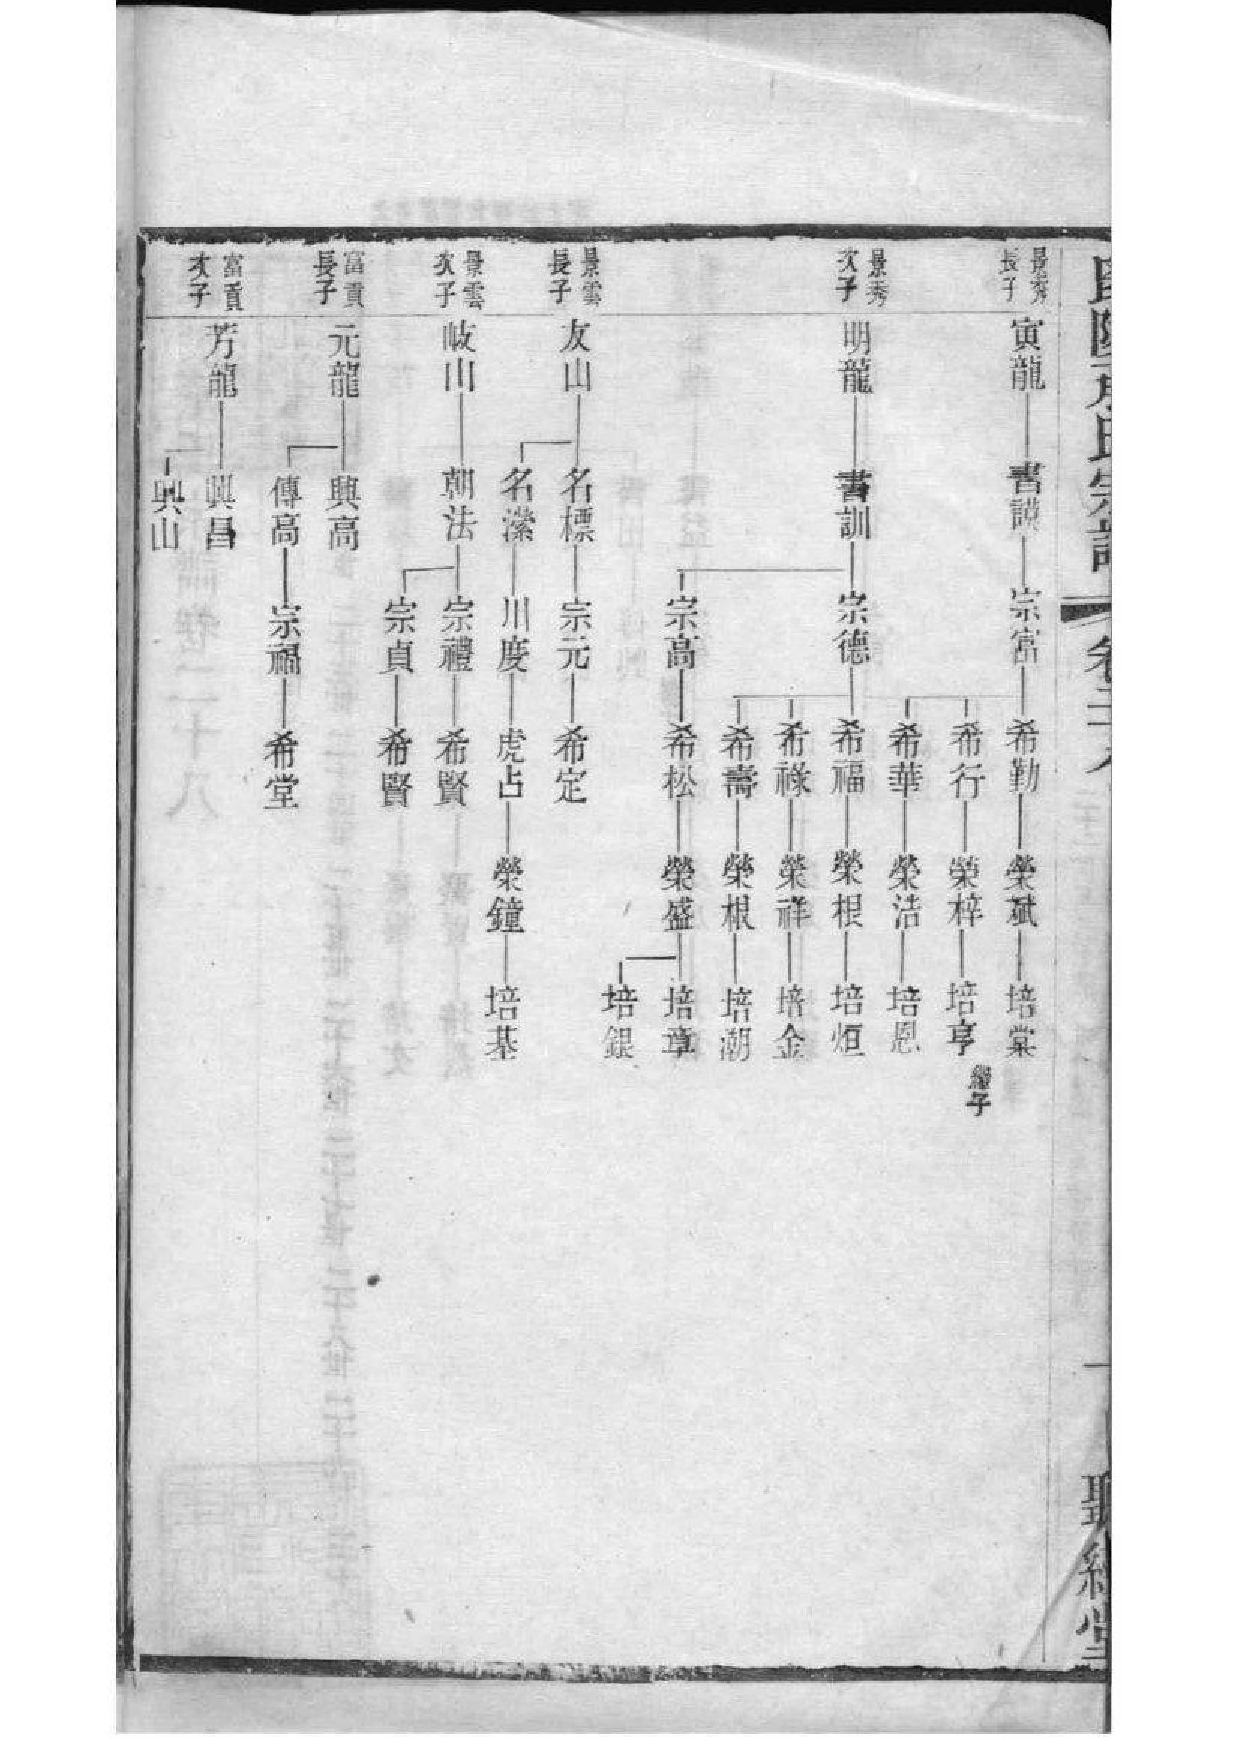 氏宗譜
卷二十八
一
聽
堂
景秀長子
寅龍
書謨
宗富
希勤
榮斌
培棠
希行
榮梓
培亨
繼子
希華
榮洁
培恩
景秀次子
明龍
書訓
宗德
希福
榮根
培烜
希祿
榮祥
培金
希壽
榮根
培潮
宗高
希松
榮盛
培章
培銀
景雲長子
友山
名標
宗元
希定
名瀠
川度
虎占
榮鐘
培基
景雲次子
岐山
朝法
宗禮
希賢
宗貞
希賢
富貢長子
元龍
興高
傳高
宗福
希堂
富貢次子
芳龍
興昌
興山